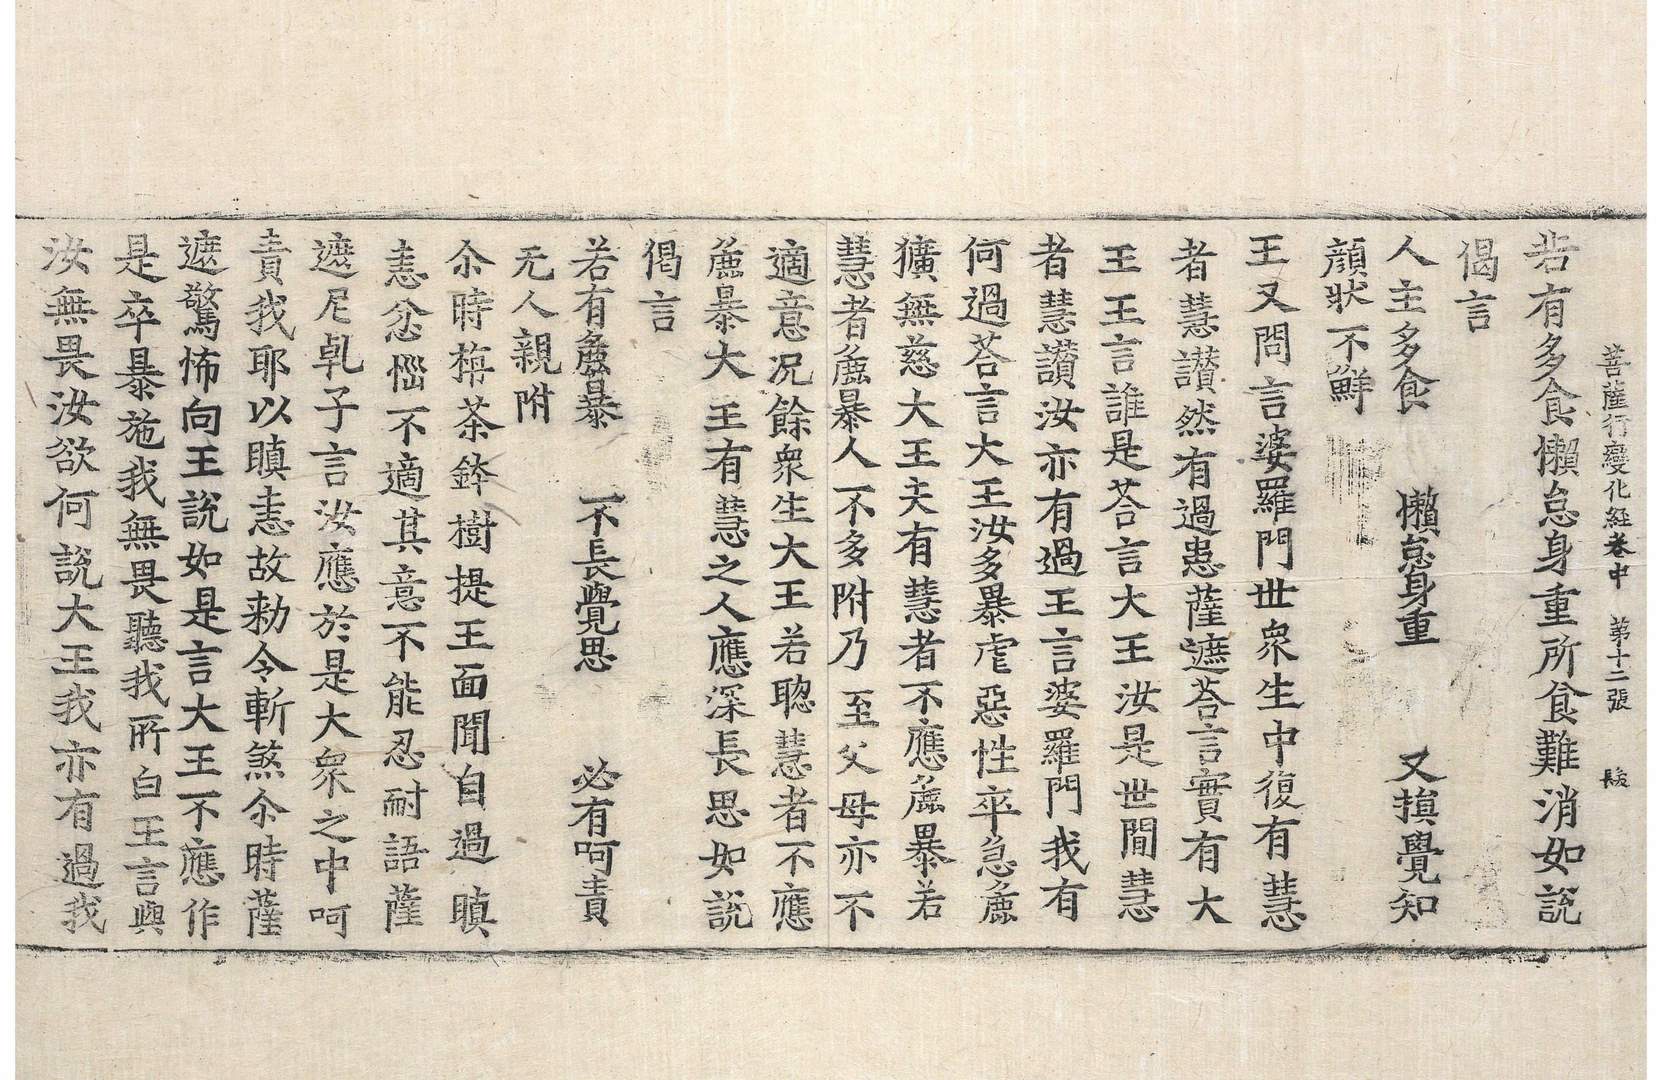 菩薩行變化經卷中 第十二張 髮
若有多食懶怠身重所食難消如說
偈言
人主多食 懶怠身重 又損覺知
顔狀不鮮
王又問言婆羅門世衆生中復有慧
者慧讃然有過患薩遮荅言實有大
王王言誰是荅言大王汝是世間慧
者慧讃汝亦有過王言婆羅門我有
何過荅言大王汝多暴虐惡性卒急麁
獷無慈大王夫有慧者不應麁暴若
慧者麁暴人不多附乃至父母亦不
適意况餘衆生大王若聦慧者不應
麁暴大王有慧之人應深長思如說
偈言
若有麁暴 不長覺思 必有呵責
无人親附
尒時栴荼鉢樹提王面聞自過瞋
恚忿惱不適其意不能忍耐語薩
遮尼乹子言汝應於是大衆之中呵
責我耶以瞋恚故勑令斬煞尒時薩
遮驚怖向王說如是言大王不應作
是卒暴施我無畏聽我所白王言與
汝無畏汝欲何說大王我亦有過我